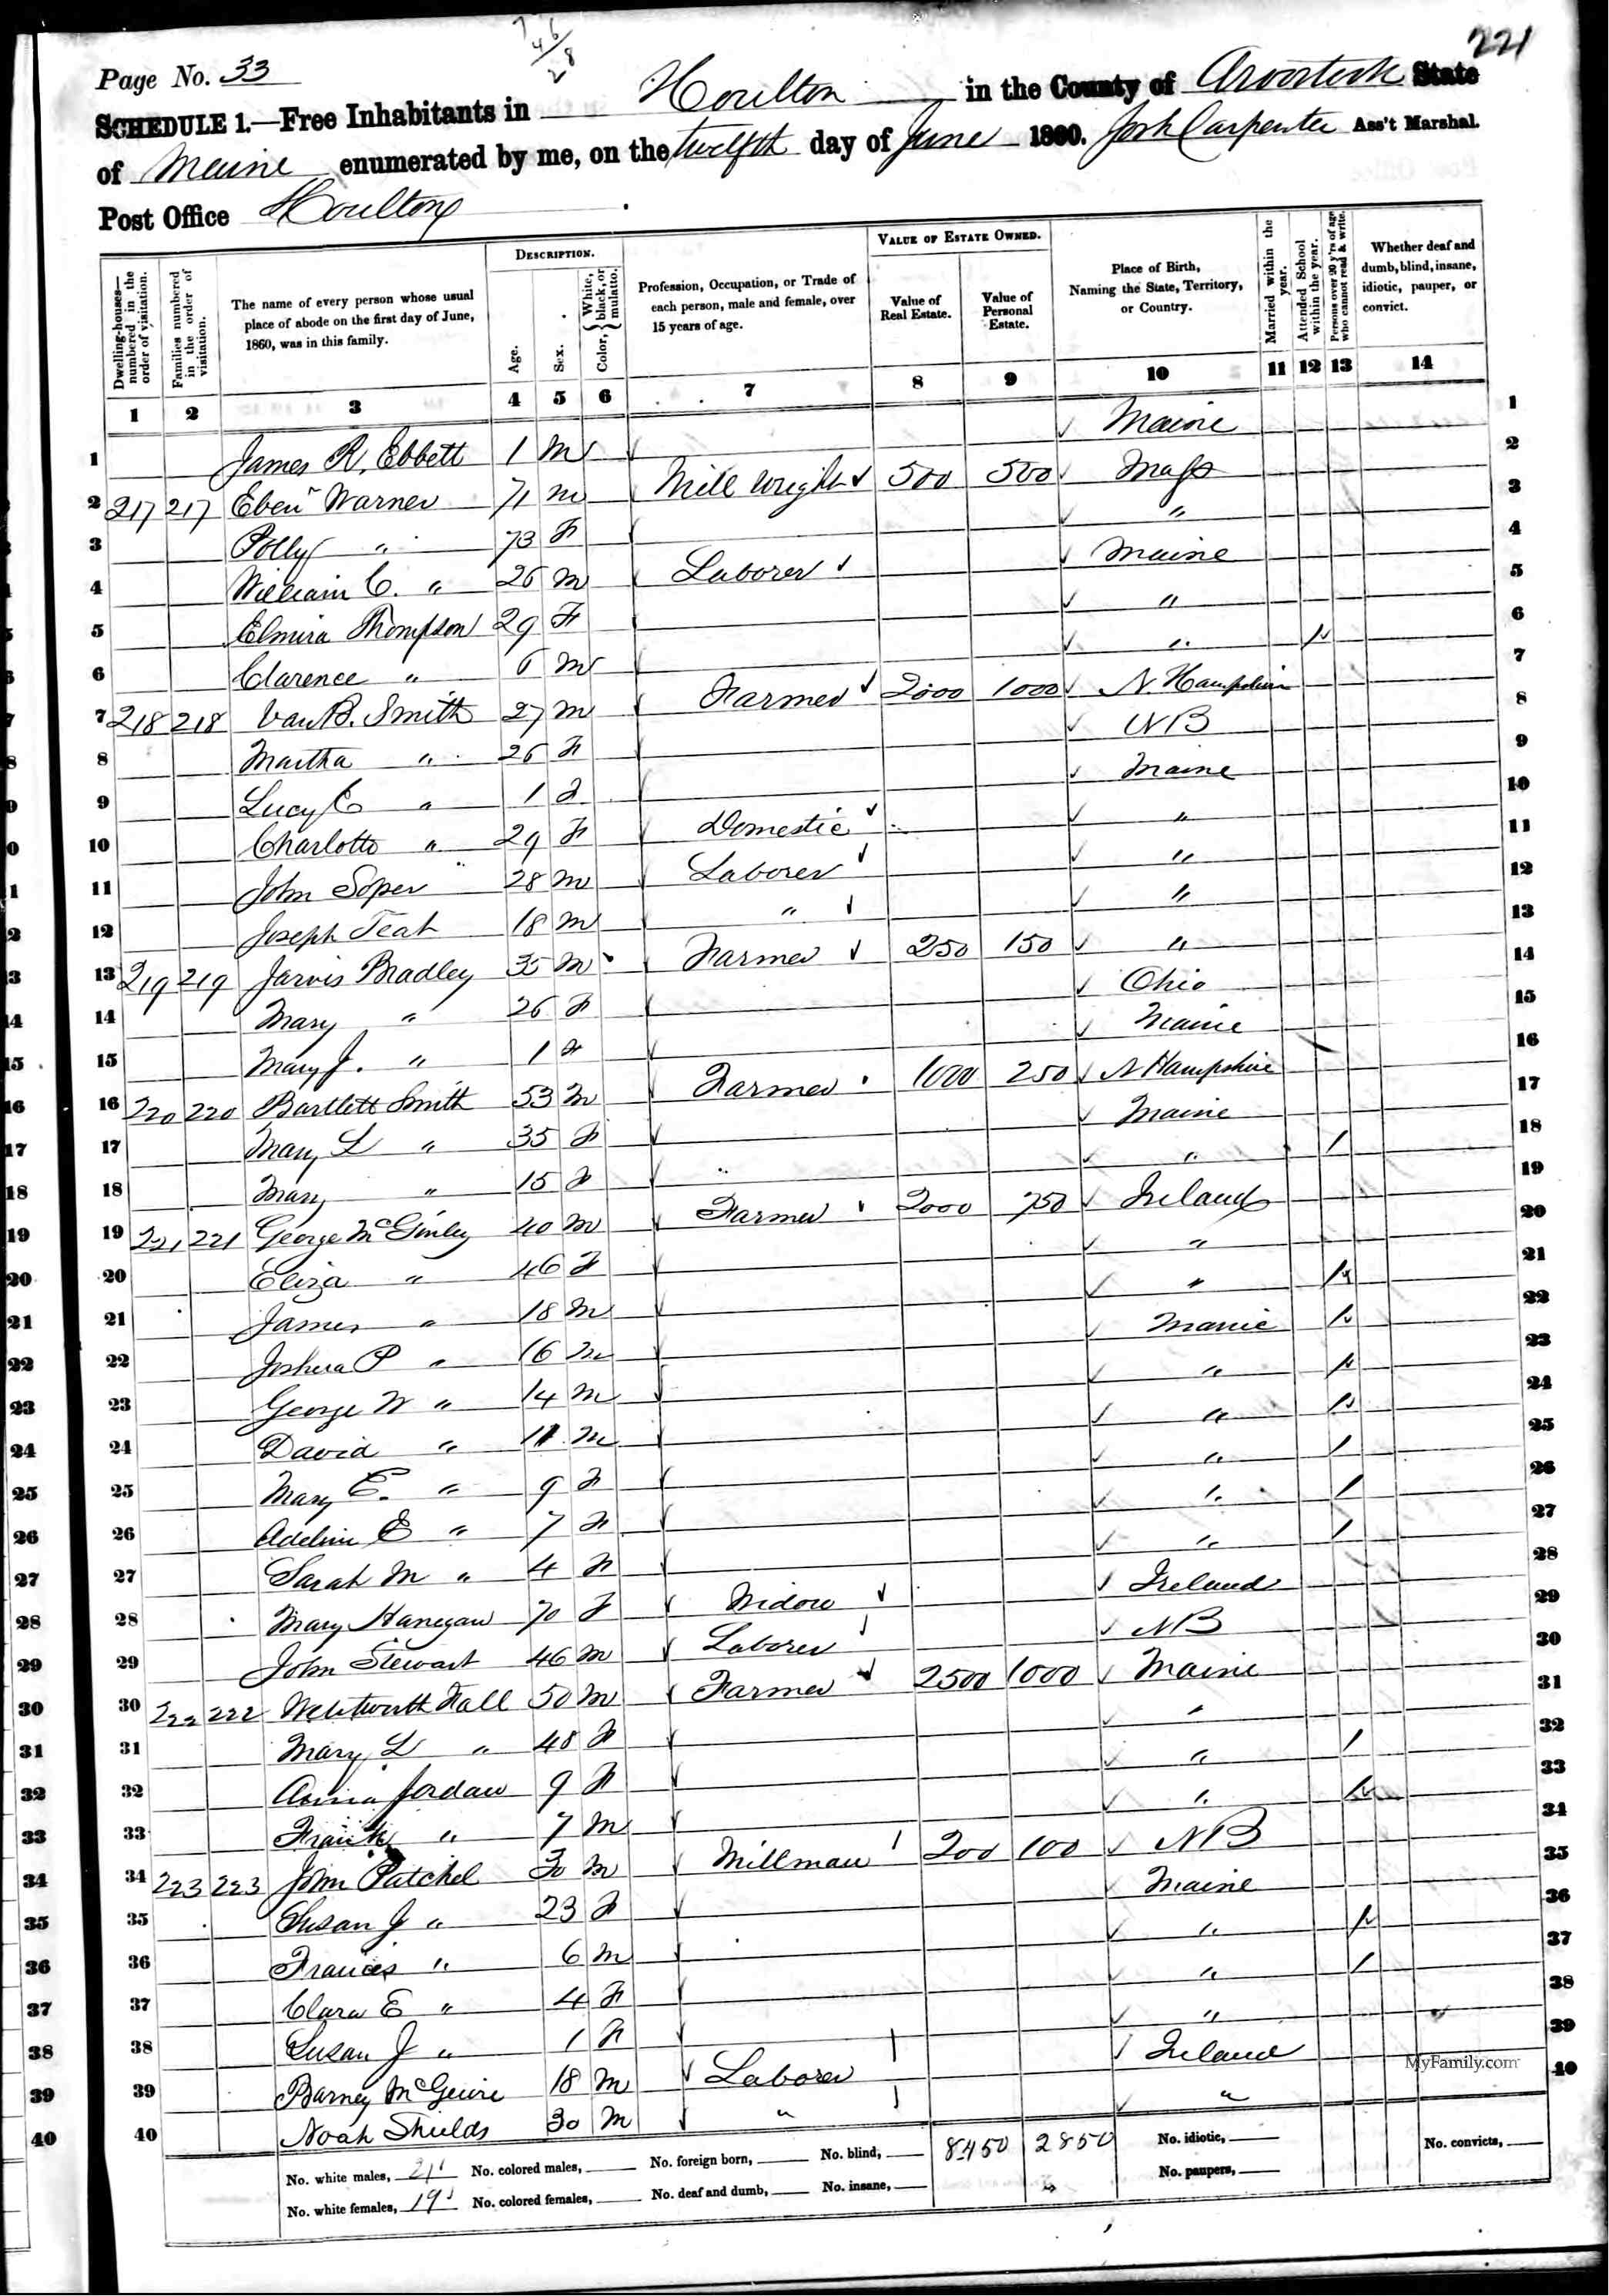 221
46/28
Page No. 33
SCHEDULE 1.—Free Inhabitants in Houlton in the County of Aroostook State
of Maine enumerated by me, on the twelfth day of June 1860. Josh Carpenter Ass't Marshal.
Post Office Houlton
Dwelling-houses—numbered in the order of visitation.
Families numbered in the order of visitation.
The name of every person whose usual place of abode on the first day of June, 1860, was in this family.
DESCRIPTION.
Age.
Sex.
Color, { White, black, or mulatto.
Profession, Occupation, or Trade of each person, male and female, over 15 years of age.
VALUE OF ESTATE OWNED.
Value of Real Estate.
Value of Personal Estate.
Place of Birth, Naming the State, Territory, or Country.
Married within the year.
Attended School within the year.
Persons over 20 y'rs of age who cannot read & write.
Whether deaf and dumb, blind, insane, idiotic, pauper, or convict.
1 2 3 4 5 6 7 8 9 10 11 12 13 14
1 James R. Ebbett 1 m Maine 1
2 217 217 Eben Warner 71 m Mill Wright 500 500 Mass 2
3 Polly " 73 F " 3
4 William C. " 26 m Laborer Maine 4
5 Elmira Thompson 29 F " 5
6 Clarence " 6 m " / 6
7 218 218 Van B. Smith 27 m Farmer 2000 1000 N. Hampshire 7
8 Martha " 26 F NB 8
9 Lucy E " 1 F Maine 9
10 Charlotte " 29 F Domestic " 10
11 John Soper 28 m Laborer " 11
12 Joseph Teat 18 m " " 12
13 219 219 Jarvis Bradley 35 m Farmer 250 150 " 13
14 Mary " 26 F Ohio 14
15 Mary J. " 1 F Maine 15
16 220 220 Bartlett Smith 53 m Farmer 1000 250 N Hampshire 16
17 Mary L " 35 F Maine 17
18 Mary " 15 F " / 18
19 221 221 George McGinley 40 m Farmer 2000 750 Ireland 19
20 Eliza " 46 F " 20
21 James " 18 m " / 21
22 Joshua P " 16 m Maine / 22
23 George W " 14 m " / 23
24 David " 11 m " / 24
25 Mary E. " 9 F " / 25
26 Adeline E " 7 F " / 26
27 Sarah M " 4 F " / 27
28 Mary Hanegan 70 F Widow Ireland 28
29 John Stewart 46 m Laborer NB 29
30 222 222 Wentworth Hall 50 m Farmer 2500 1000 Maine 30
31 Mary L " 48 F " 31
32 Anna Jordan 9 F " / 32
33 Frank " 7 m " / 33
34 223 223 John Patchel 30 m Millman 200 100 NB 34
35 Susan J " 23 F Maine 35
36 Francis " 6 m " / 36
37 Clara E " 4 F " / 37
38 Susan J " 1 F " 38
39 Barney McGuire 18 m Laborer Ireland 39
40 Noah Shields 30 m " " 40
MyFamily.com
No. white males, 21 No. colored males, No. foreign born, No. blind, 8450 2850 No. idiotic, No. convicts,
No. white females, 19 No. colored females, No. deaf and dumb, No. insane, No. paupers,